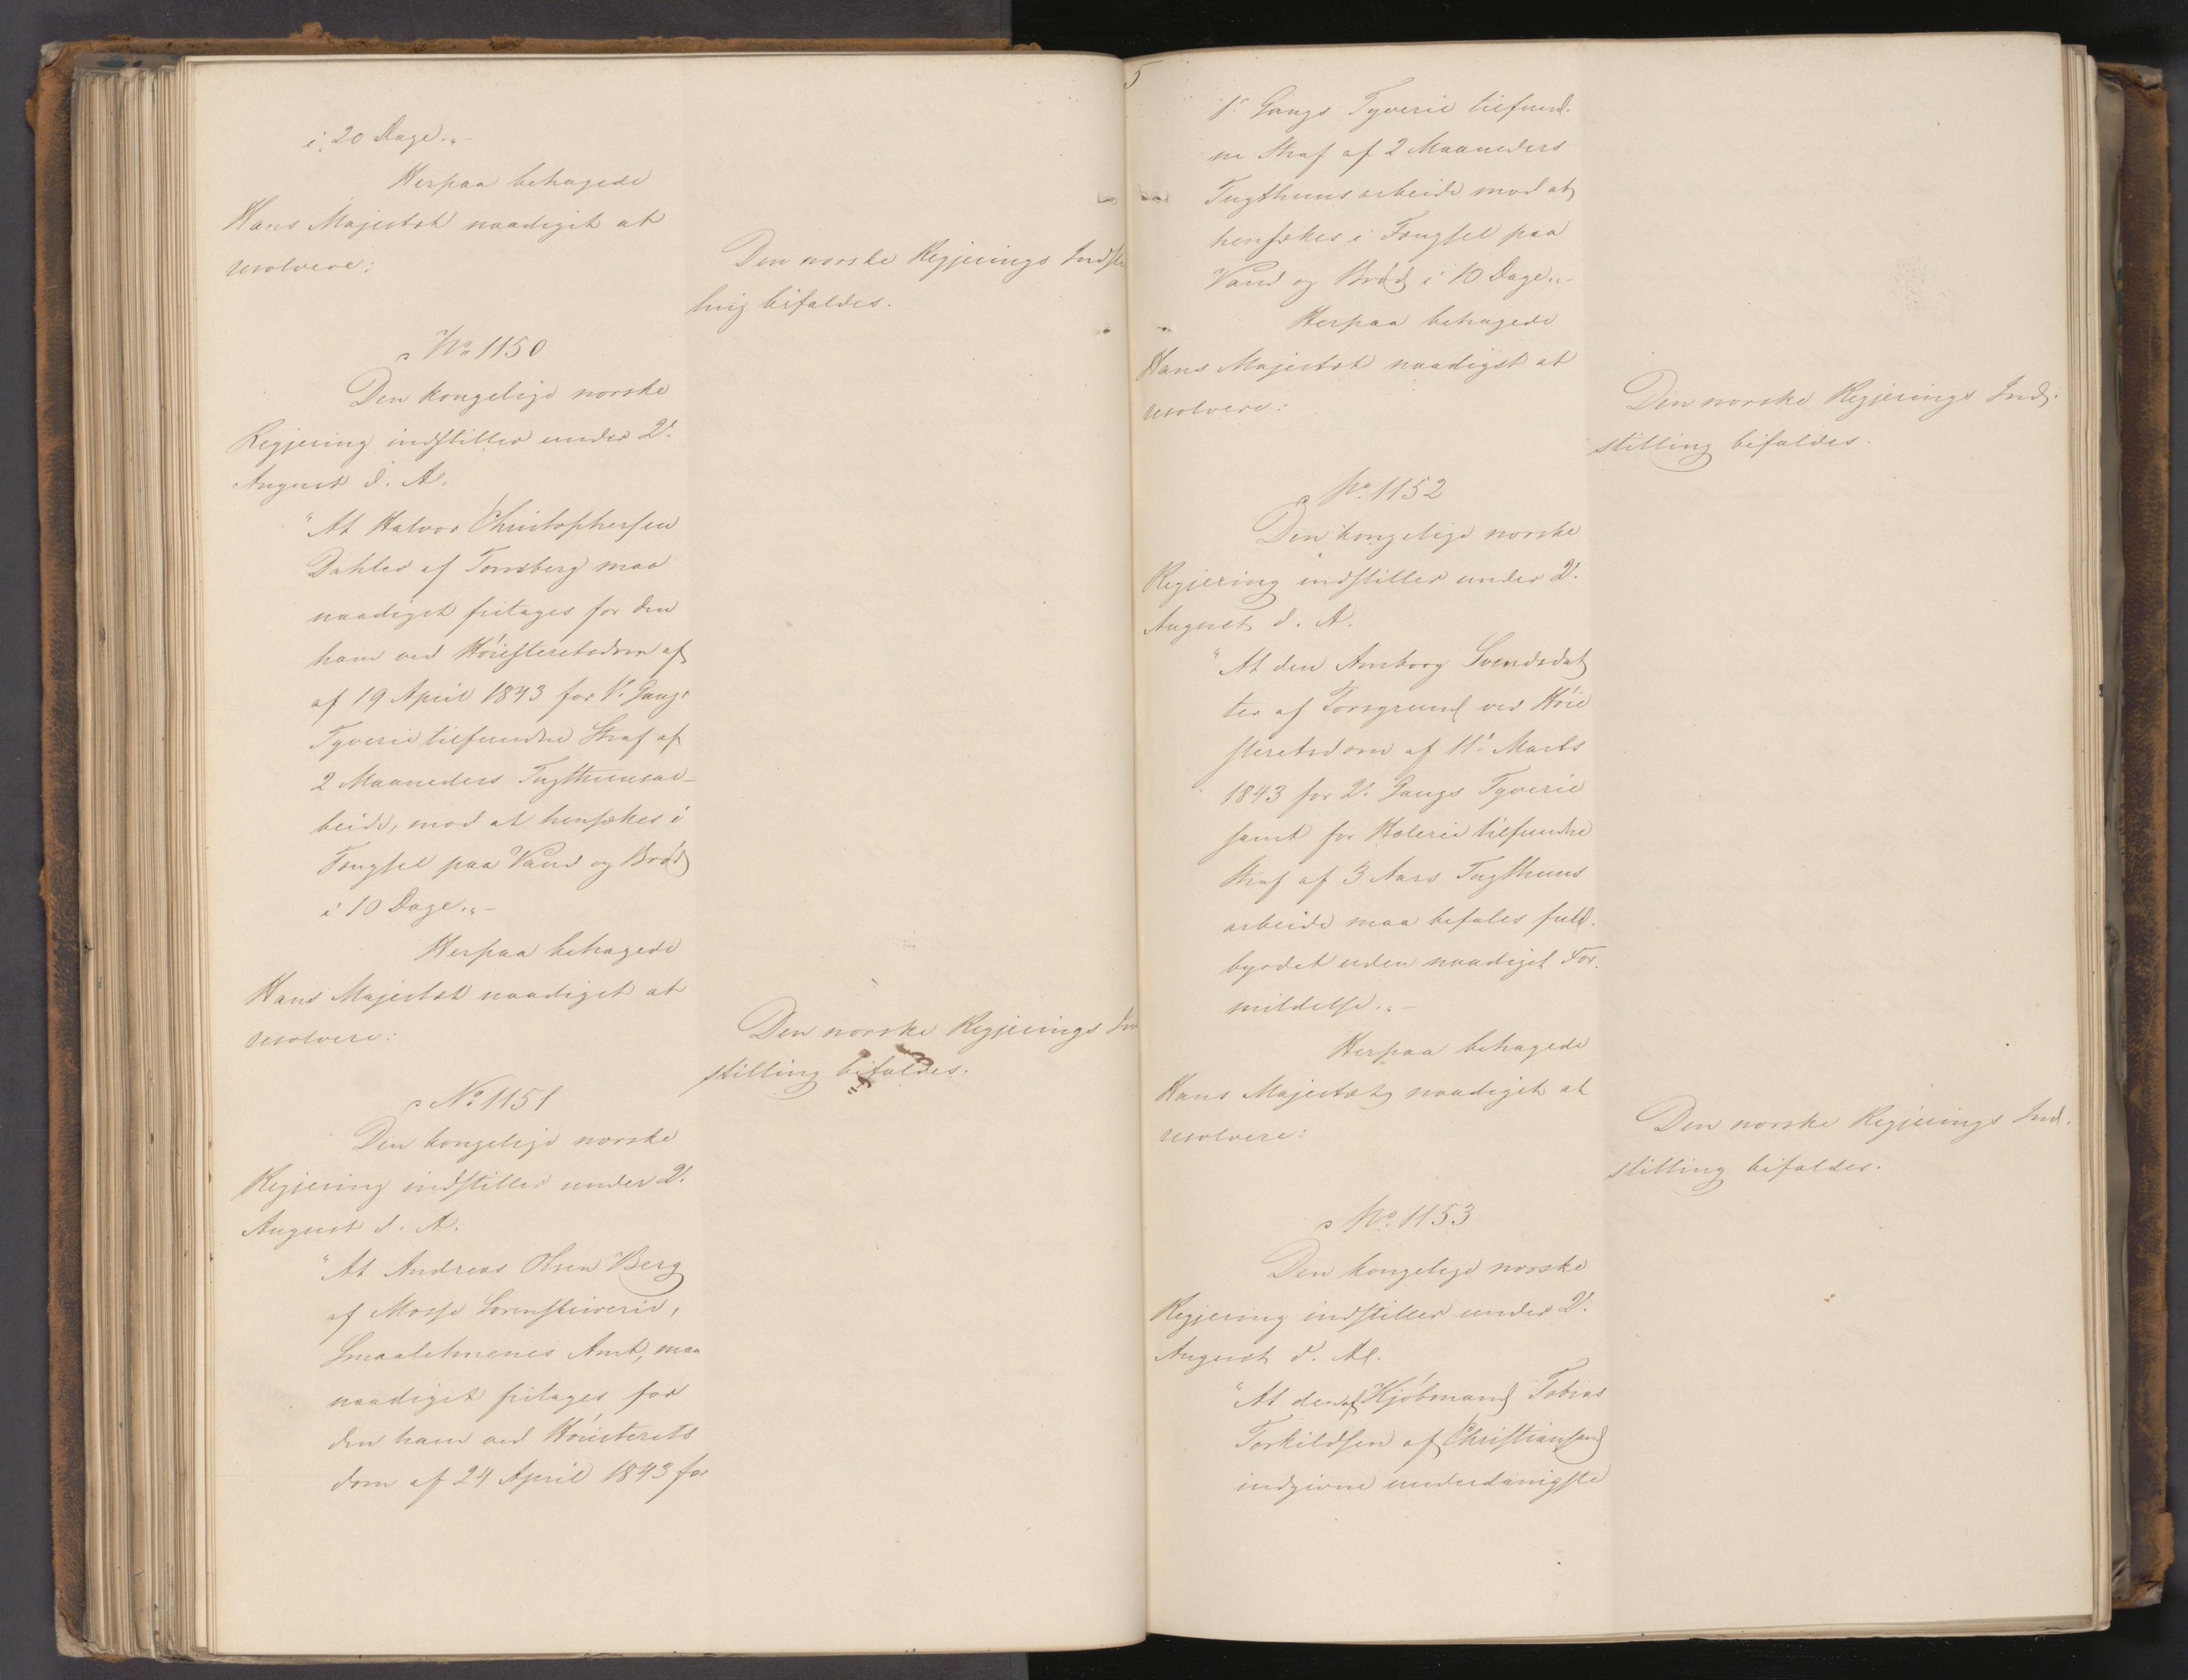 i 20 Dage."-
Herpaa behagede
Hans Majestæt naadigst at
resolvere:
Den norske Regjerings Indstil
ling bifaldes.
No 1150
Den kongelige norske
Regjering indstiller under 2.
August d. A.
"At Halvor Christophersen
Dahler af Tønsberg maa
naadigst fritages for den
ham ved Høiesteretsdom af
af 19 April 1843 for 1. Gangs
Tyverie tilfundne Straf af
2 Maaneders Tugthuusar-
beide, mod at hensættes i
Fængsel paa Vand og Brød
i 10 Dage."-
Herpaa behagede
Hans Majestæt naadigst at
resolvere:
Den norske Regjerings Ind
stilling bifaldes.
No 1151
Den kongelige norske
Regjering indstiller under 2.
August d. A.
"At Andreas Olsen Berg
af Mosse Sorenskriverie,
Smaalehnenes Amt, maa
naadigst fritages for
den ham ved Høiesterets
dom af 24 April 1843 for
5
1. Gangs Tyverie tilfund-
ne Straf af 2 Maaneders
Tugthuusarbeide mod at
hensættes i Fængsel paa
Vand og Brød i 10 Dage."-
Herpaa behagede
Hans Majestæt naadigst at
resolvere:
Den norske Regjerings Ind-
stilling bifaldes.
No. 1152
Den kongelige norske
Regjering indstiller under 2.
August d. A.
"At den Anborg Svendsdat
ter af Porsgrund ved Høie
steretsdom af 11. Marts
1843 for 2. Gangs Tyverie
samt for Hæleri tilfundne
Straf af 3 Aars Tugthuus
arbeide maa befales fuld-
byrdet uden naadigst For-
mildelse."-
Herpaa behagede
Hans Majestæt naadigst at
resolvere:
Den norske Regjerings Ind-
stilling bifaldes.
No. 1153
Den kongelige norske
Regjering indstiller under 2.
August d. A.
"At den af Kjøbmand Tobias
Torkildsen af Christiansand
indgivne underdanigste